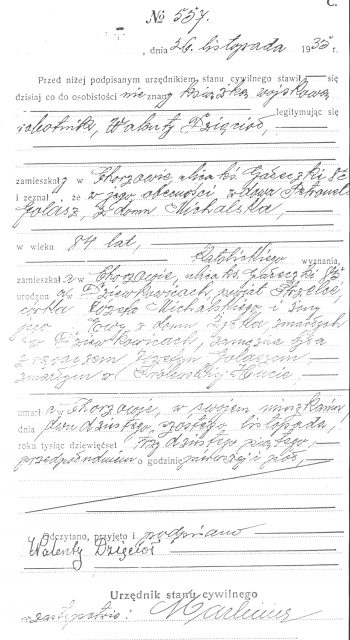 C.
№ 557.
, dnia 26 listopada 1935 r.
Przed niżej podpisanym urzędnikiem stanu cywilnego stawił się
dzisiaj co do osobistości nie znany książką wojskową
legitymując się
robotnik, Walenty Dzięcioł,
zamieszkały w Chorzowie, ulica ks. Gałeczki 82
i zeznał, że w jego obecności wdowa Petronela
Golasz, z domu Michalska,
w wieku 84 lat,
katolickiego wyznania,
zamieszkała w Chorzowie, ulica ks. Gałeczki 82
urodzona w Dziewkowicach, powiat Strzelce,
córka Józefa Michalskiego i żony
jego Ewy z domu zmarłych
w Dziewkowicach, zamężna była
z Golaszem
zmarłym w Królewskiej Hucie,
umarła w Chorzowie, w swojem mieszkaniu
dnia dwudziestego szóstego listopada,
roku tysiąc dziewięćset trzydziestego piątego,
przedpołudniem o godzinie pierwszej i pół,
Odczytano, przyjęto i podpisano
Walenty Dzięcioł
Urzędnik stanu cywilnego
w zastępstwie: